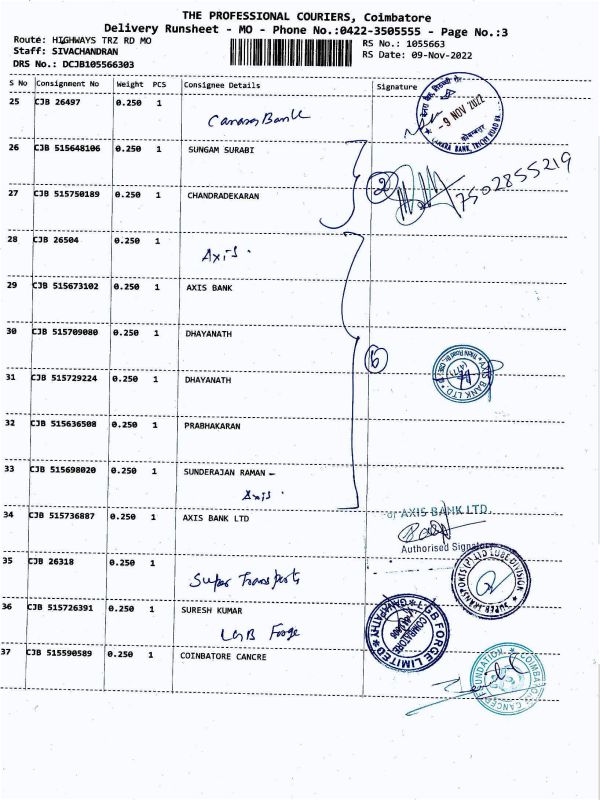 THE PROFESSIONAL COURIERS, Coimbatore
Delivery Runsheet - MO - Phone No.:0422-3505555 - Page No.:3
Route: HIGHWAYS TRZ RD MO
RS No.: 1055663
Staff: SIVACHANDRAN
RS Date: 09-Nov-2022
DRS No.: DCJB105566303
S No Consignment No Weight PCS Consignee Details Signature
25 CJB 26497 0.250 1
Canara Bank
- 9 NOV 2022
CANARA BANK, TRICHY ROAD
26 CJB 515648106 0.250 1 SUNGAM SURABI
2
7502855219
27 CJB 515750189 0.250 1 CHANDRADEKARAN
28 CJB 26504 0.250 1
Axis.
29 CJB 515673102 0.250 1 AXIS BANK
30 CJB 515709080 0.250 1 DHAYANATH
6
AXIS BANK LTD
31 CJB 515729224 0.250 1 DHAYANATH
32 CJB 515636508 0.250 1 PRABHAKARAN
33 CJB 515698020 0.250 1 SUNDERAJAN RAMAN -
Axis.
34 CJB 515736887 0.250 1 AXIS BANK LTD
AXIS BANK LTD.
Authorised Signatory
35 CJB 26318 0.250 1
Super Transports
SUPER TRANSPORTS (P) LTD LUBE DIVISION
36 CJB 515726391 0.250 1 SURESH KUMAR
LGB Forge
LGB FORGE LIMITED GANAPATHY
COIMBATORE
37 CJB 515590589 0.250 1 COINBATORE CANCRE
COIMBATORE CANCER FOUNDATION